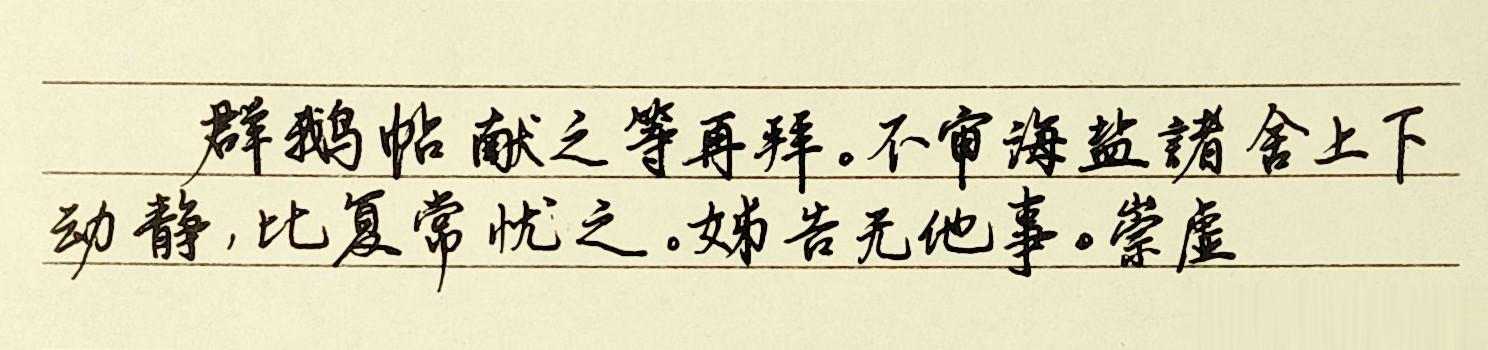 群鹅帖献之等再拜。不审海盐諸舍上下
动静,比复常忧之。姊告无他事。崇虚